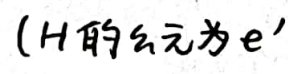 (H的幺元为e'